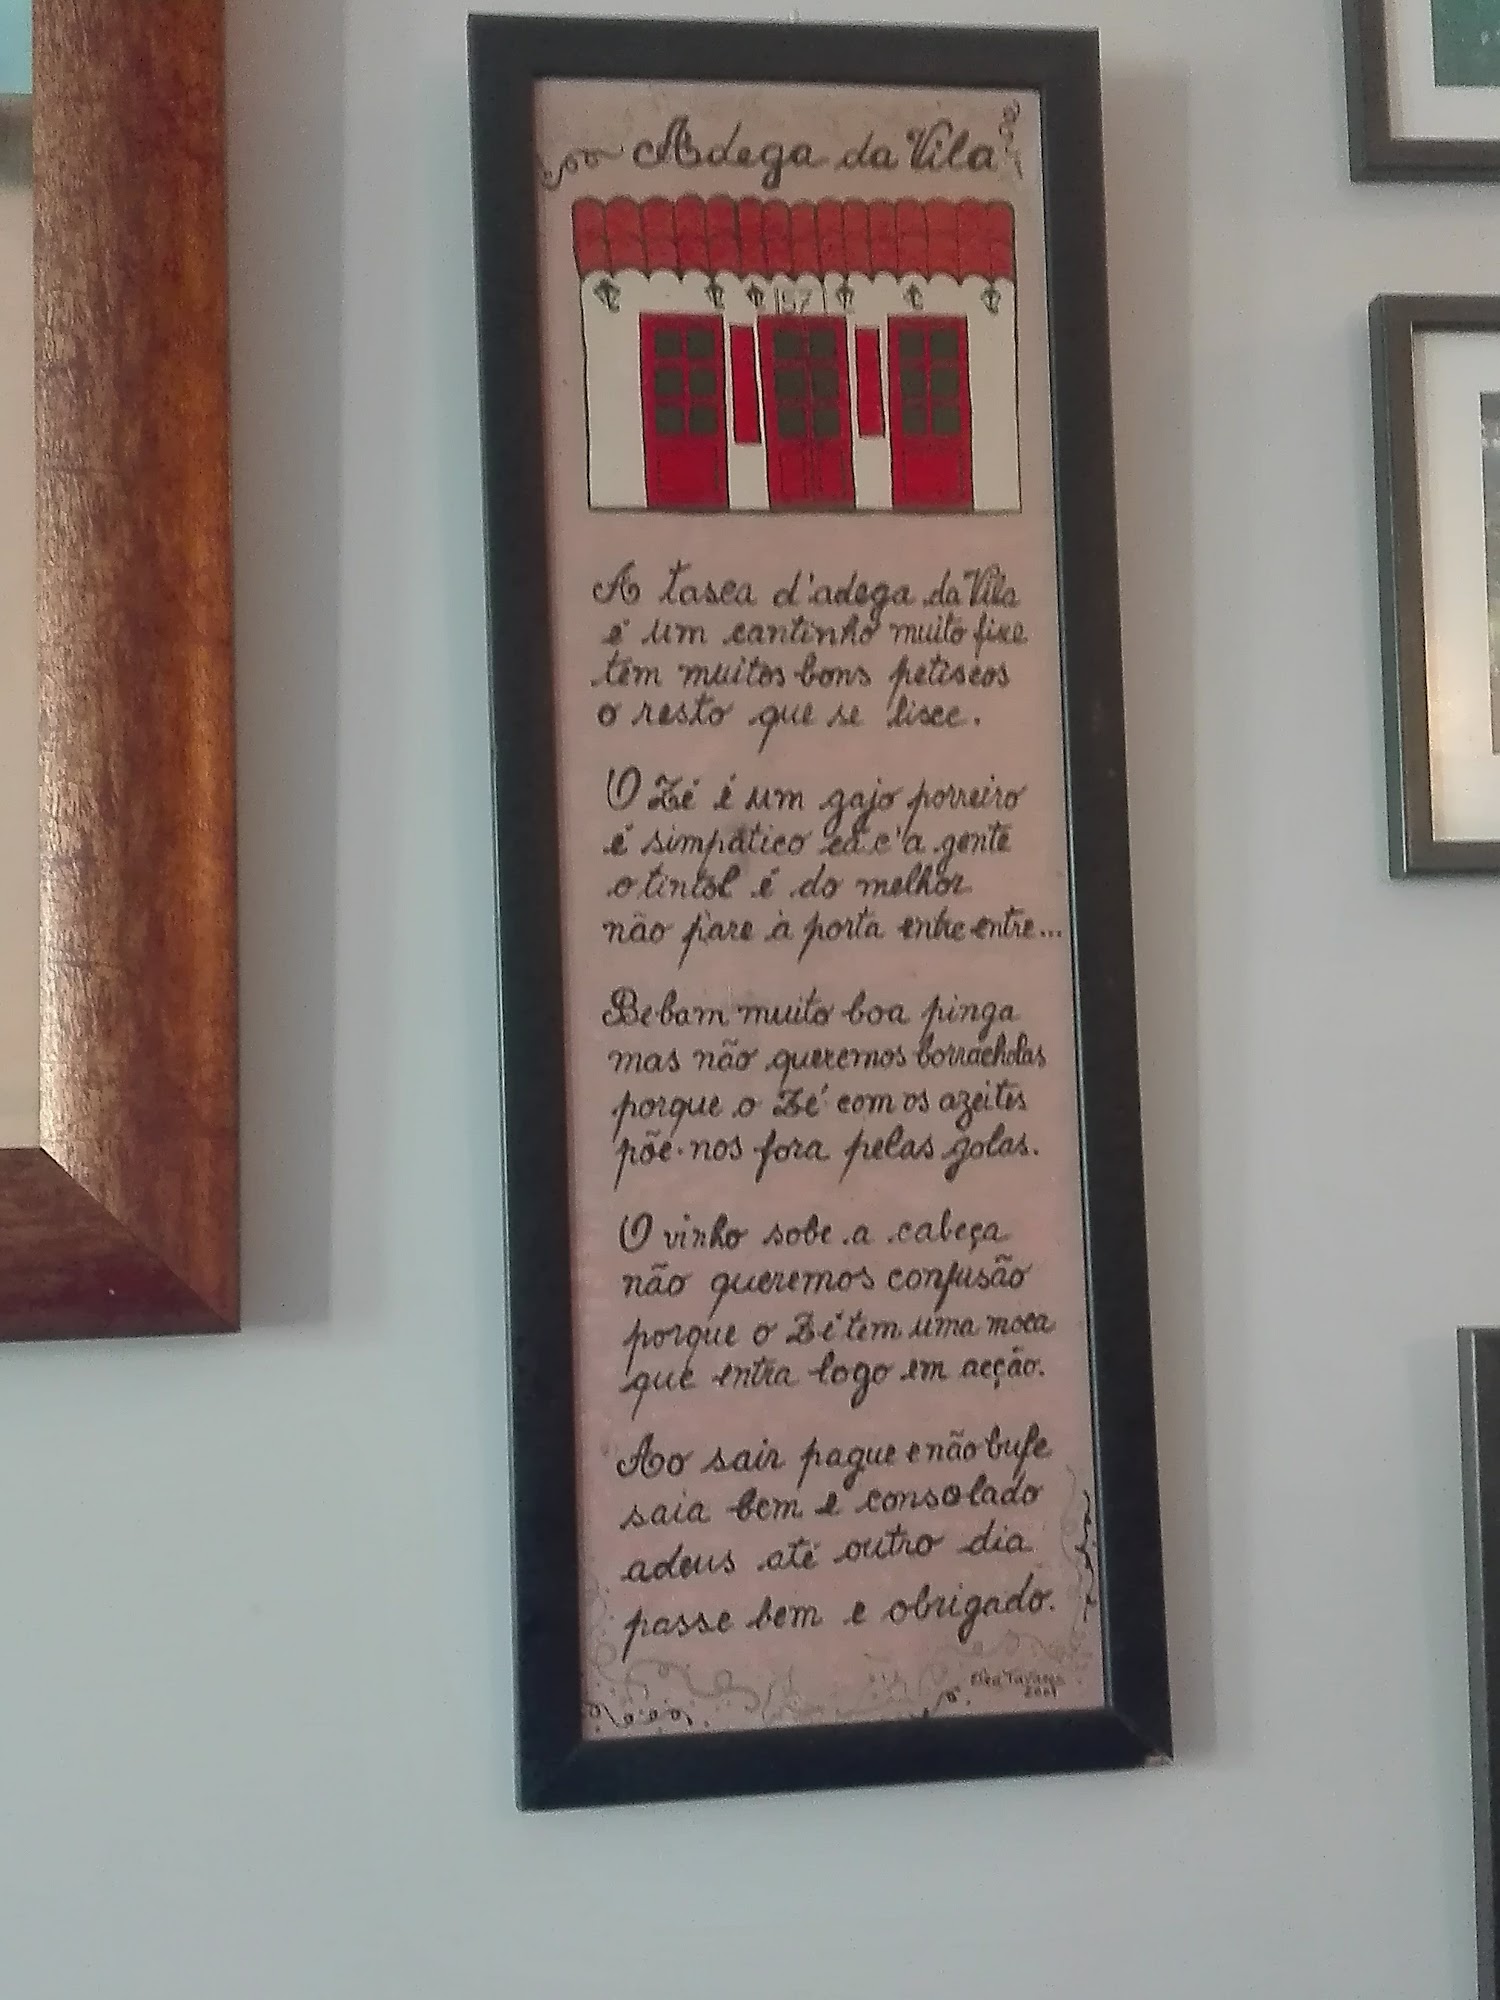 Adega da Vila
157
A tasca d'adega da Vila
é um cantinho muito fixe
tem muitos bons petiscos
o resto que se lixe.
O Zé é um gajo porreiro
é simpático cá c'a gente
o tintol é do melhor
não páre à porta entre entre...
Bebam muito boa pinga
mas não queremos borracholas
porque o Zé com os azeites
põe-nos fora pelas golas.
O vinho sobe a cabeça
não queremos confusão
porque o Zé tem uma moca
que entra logo em acção.
Ao sair pague e não bufe
saia bem e consolado
adeus até outro dia
passe bem e obrigado.
Tavares